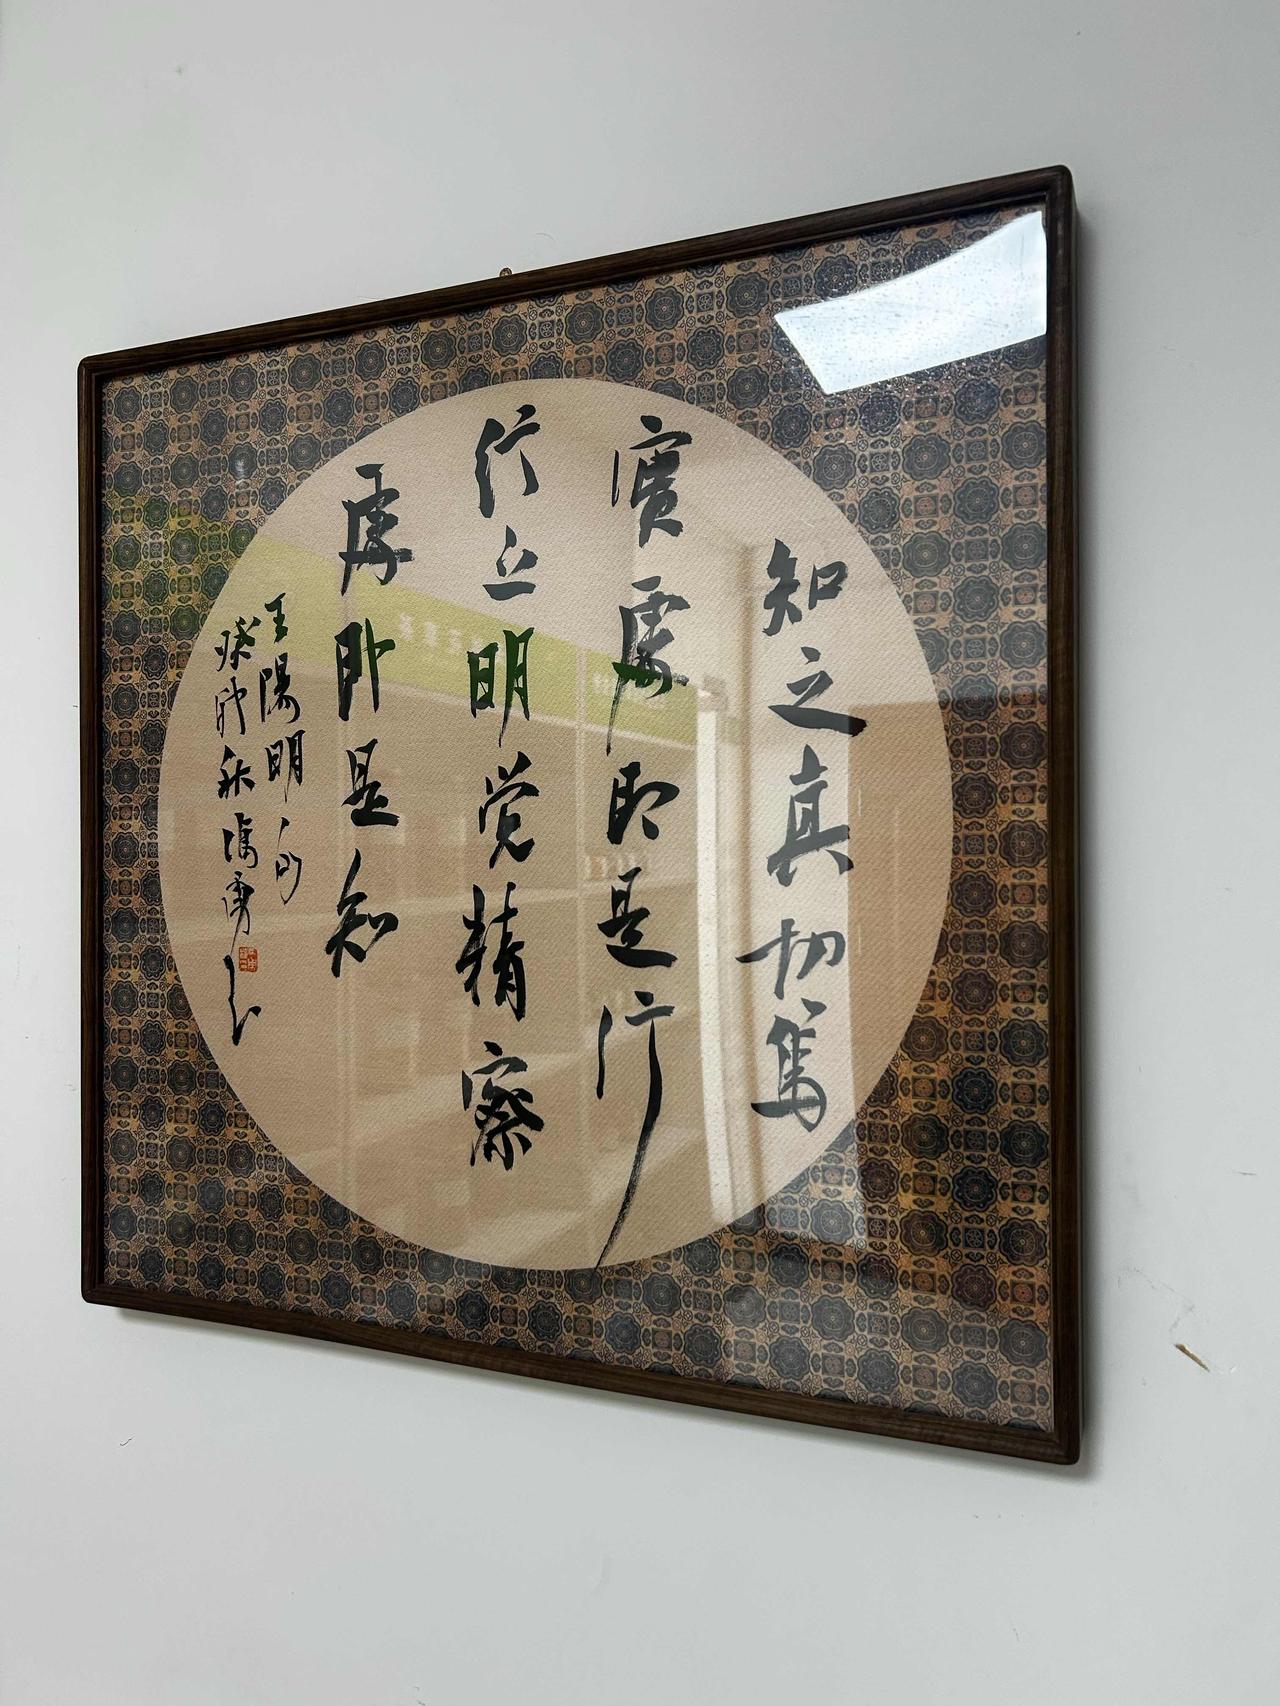 知之真切篤
實處即是行
行之明觉精察
處即是知
王陽明句
癸卯秋